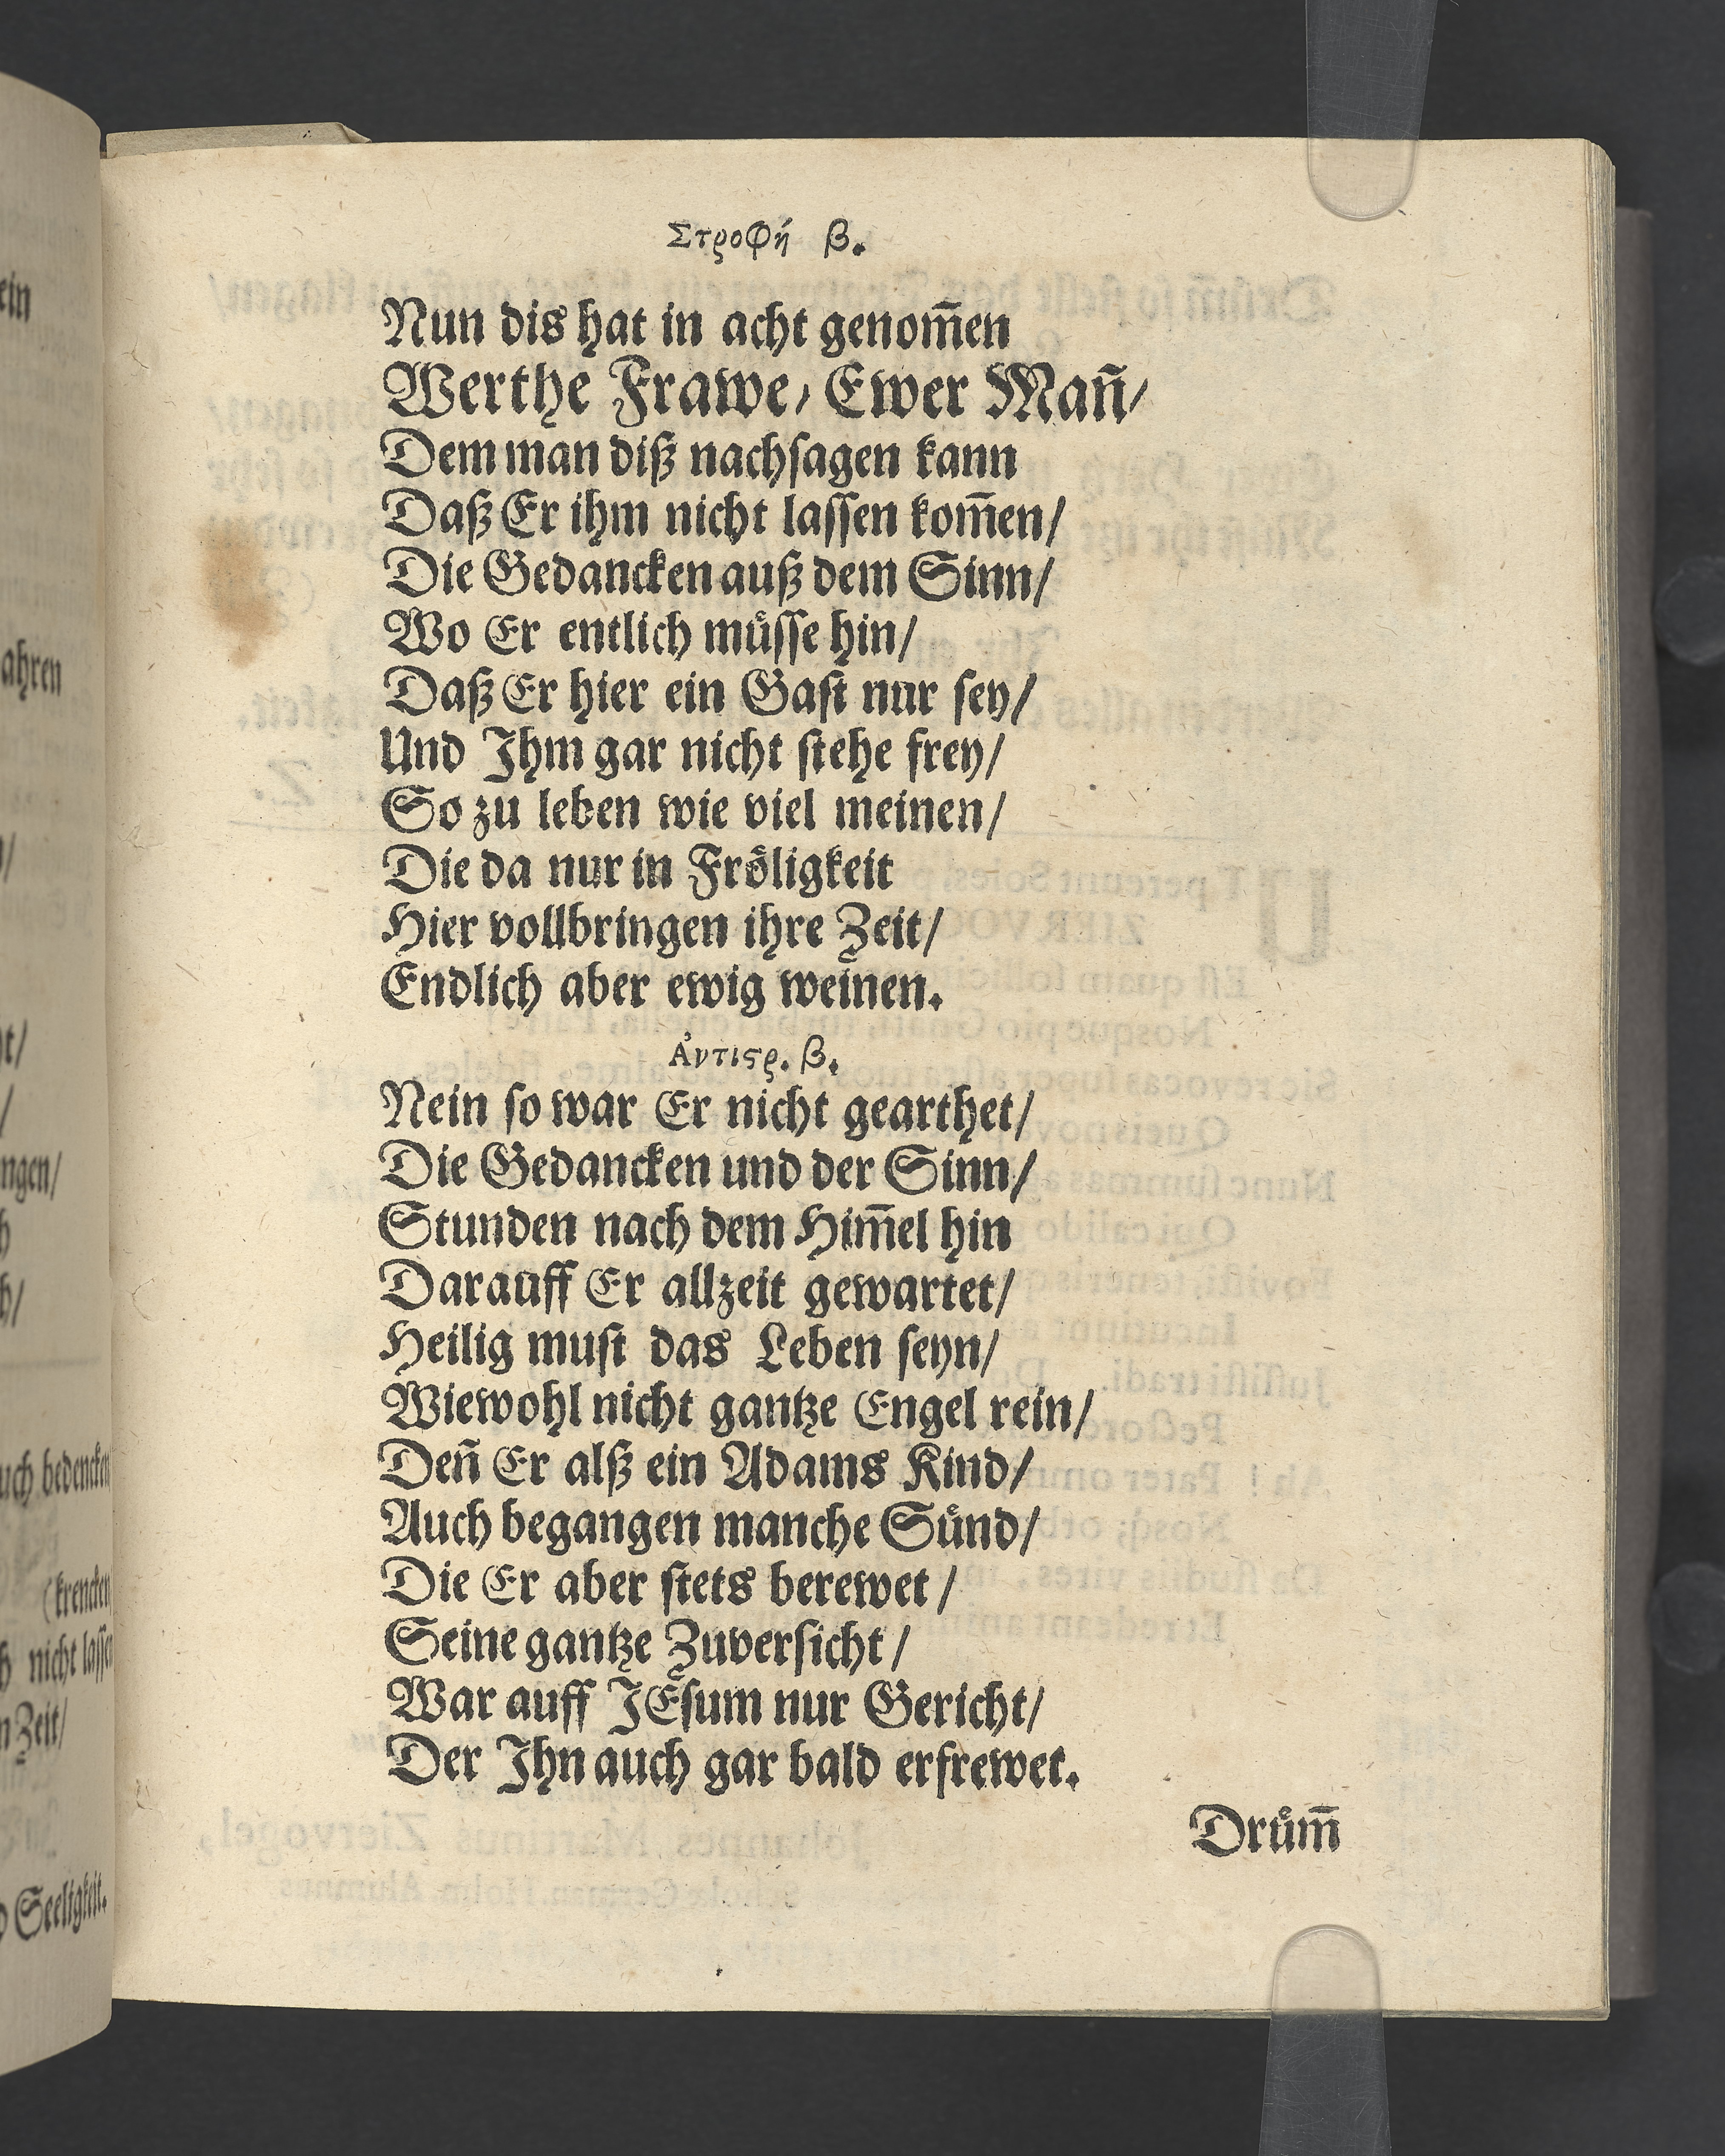 Στροφή β.
Nun dis hat in acht genom̃en
Werthe Frawe, Ewer Mañ/
Dem man diß nachsagen kann
Daß Er ihm nicht lassen kom̃en/
Die Gedancken auß dem Sinn/
Wo Er entlich müsse hin/
Daß Er hier ein Gast nur sey/
Und Ihm gar nicht stehe frey/
So zu leben wie viel meinen/
Die da nur in Fröligkeit
Hier vollbringen ihre Zeit/
Endlich aber ewig weinen.
Ἀντιςρ. β.
Nein so war Er nicht gearthet/
Die Gedancken und der Sinn/
Stunden nach dem Him̃el hin
Darauff Er allzeit gewartet/
Heilig must das Leben seyn/
Wiewohl nicht gantze Engel rein/
Deñ Er alß ein Adams Kind/
Auch begangen manche Sünd/
Die Er aber stets berewet/
Seine gantze Zuversicht/
War auff JEsum nur Gericht/
Der Ihn auch gar bald erfrewet.
Drüm̃
ein
ahren
ngen/
uch bedencken
(krencken
nicht lassen
Zeit/
Seeligkeit.